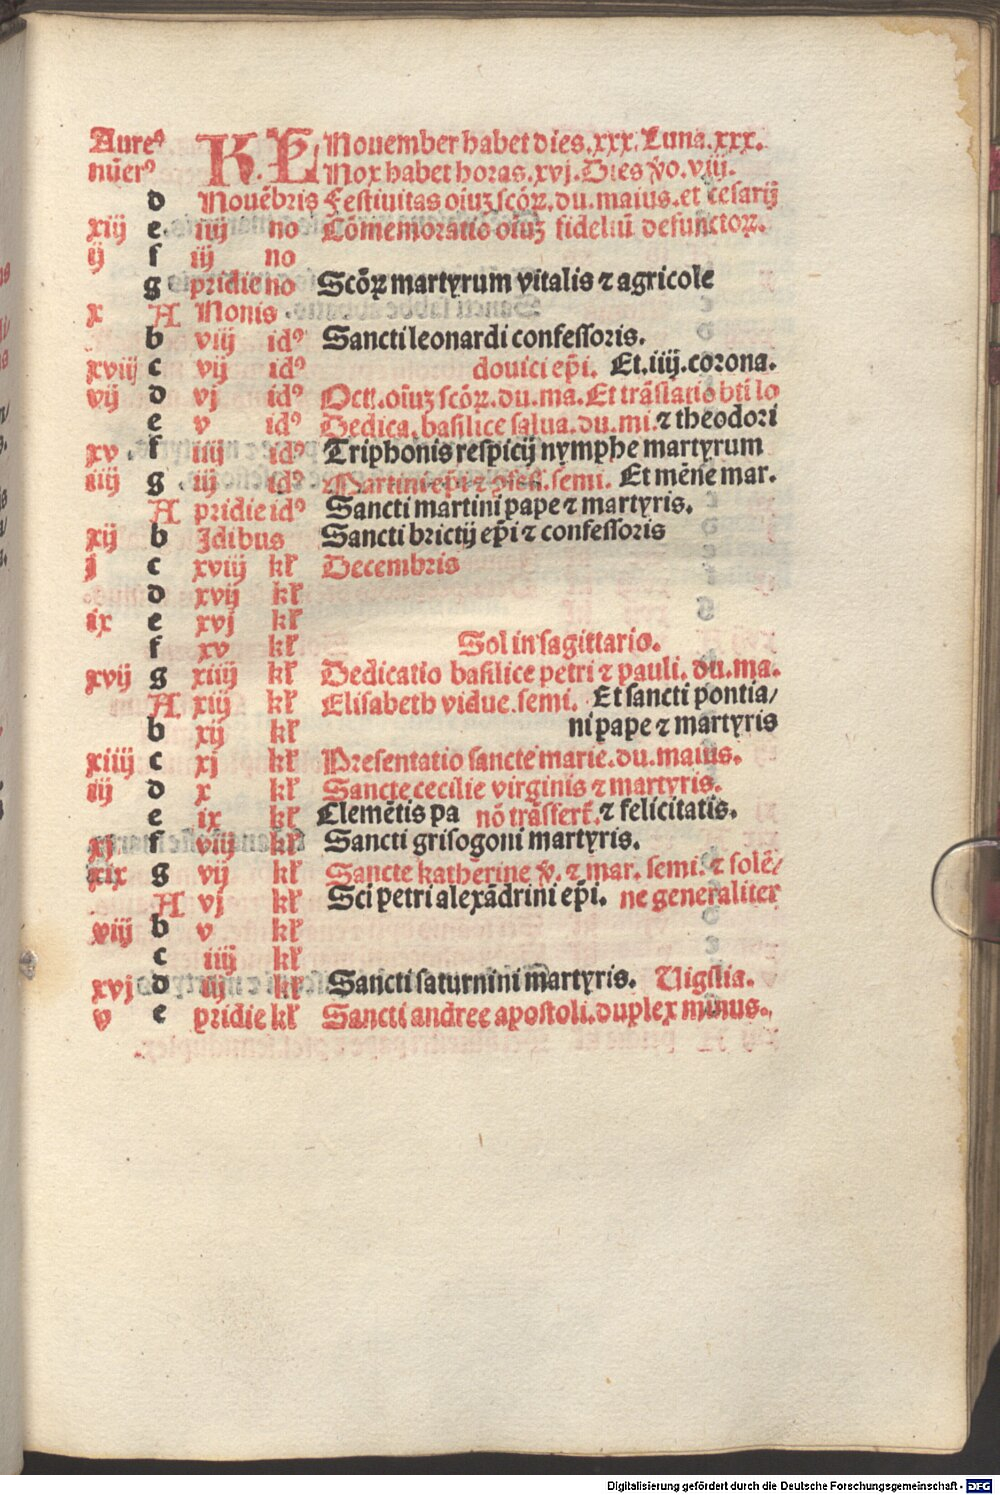 Aureꝰ K. Kł November habet dies .xxx. Luna .xxx.
nūerꝰ Nox habet horas .xvj. Dies ꝟo .viij.
d Nouēbris Festiuitas oīuꝫ scōꝝ. du. maius. et cesarij
xiij e iiij no Cōmemoratio oīuꝫ fideliū defunctoꝝ.
ij f iij no
g pridie no Scōꝝ martyrum vitalis ⁊ agricole
x A Nonis
b viij idꝰ Sancti leonardi confessoris.
xviij c vij idꝰ douici ep̄i. Et .iiij. corona.
vij d vj idꝰ Oct. oīuꝫ scōꝝ. du. ma. Et trāslatio btī lo
e v idꝰ Dedica. basilice salua. du. mi. ⁊ theodori
xv f iiij idꝰ Triphonis respicij nymphe martyrum
iiij g iij idꝰ Martini ep̄i ⁊ ꝯfess. semi. Et mēne mar.
A pridie idꝰ Sancti martini pape ⁊ martyris.
xij b Idibus Sancti brictij ep̄i ⁊ confessoris
j c xviij kł Decembris
d xvij kł
ix e xvj kł
f xv kł Sol in sagittario.
xvij g xiiij kł Dedicatio basilice petri ⁊ pauli. du. ma.
A xiij kł Elisabeth vidue. semi. Et sancti pontia/
b xij kł ni pape ⁊ martyris
xiiij c xj kł Presentatio sancte marie. du. maius.
iij d x kł Sancte cecilie virginis ⁊ martyris.
e ix kł Clemētis pa nō trāsfert̄. ⁊ felicitatis.
xj f viij kł Sancti grisogoni martyris.
xix g vij kł Sancte katherine ꝟ. ⁊ mar. semi. ⁊ solē/
A vj kł Sci petri alexādrini ep̄i. ne generaliter
viij b v kł
c iiij kł
xvj d iij kł Sancti saturnini martyris. Uigilia.
v e pridie kł Sancti andree apostoli. duplex minus.
Digitalisierung gefördert durch die Deutsche Forschungsgemeinschaft - DFG